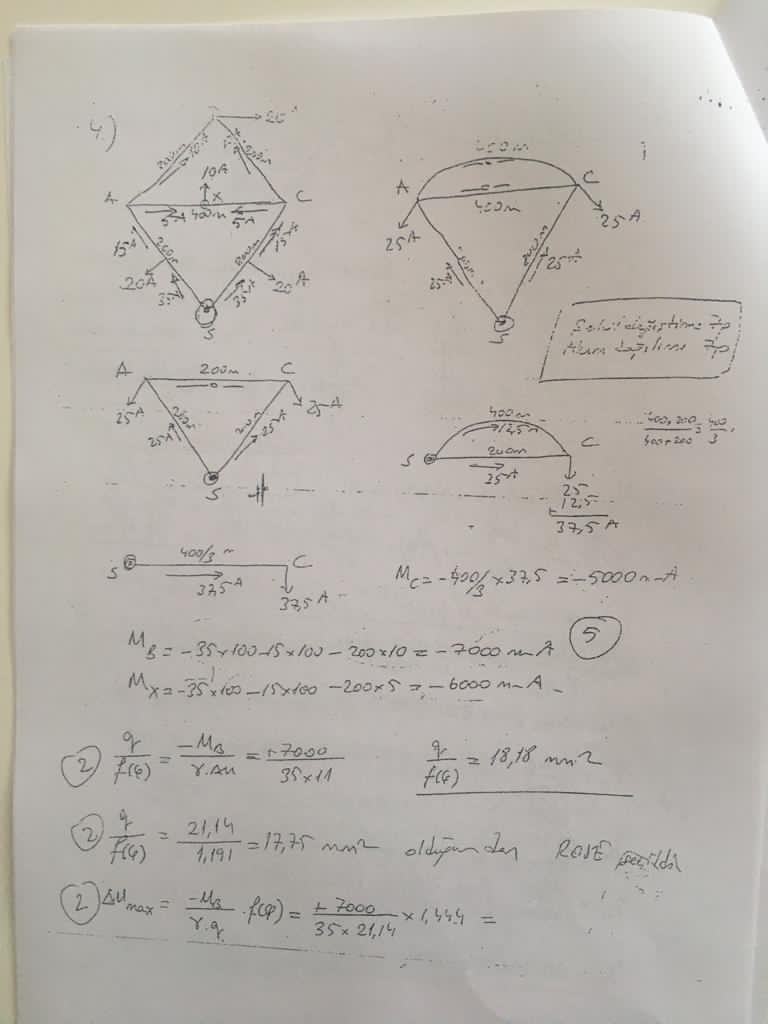 4.)
20
200m
10A
200m
10A
A
X
C
5A
400m
5A
15A
200m
200m
15A
20A
35A
35A
20A
S
400m
A
C
400m
25A
25A
25A
200m
25A
S
Şebeke değiştirme 7p
Akım dağılımı 7p
A
200m
C
25A
200m
25A
200m
25A
25A
S
400m
12,5A
S
200m
C
25A
25
12,5
37,5 A
400x200
400+200
=
400
3
S
400/3 m
C
37,5A
37,5A
Mc = -400/3 x 37,5 = -5000 m-A
5
MB = -35x100-15x100 - 200x10 = -7000 m A
Mx = -35x100 -15x100 -200x5 = -6000 m-A
2
q/f(φ) = -MB/γ.Δu = +7000/35x11
q/f(φ) = 18,18 mm2
2
q/f(φ) = 21,14/1,191 = 17,75 mm2 olduğundan ROSE seçildi
2
ΔUmax = -MB/γ.q . f(φ) = +7000/35x21,14 x 1,444 =